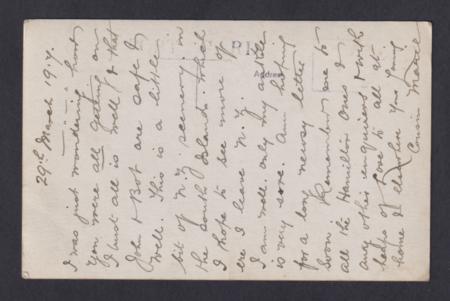 29th March 1917.
I was just wondering how
you were all getting on
I trust all is well & that
John & Bot are safe &
well. This is a little
bit of N.Z. scenery in
the South Island which
I hope to see more of
ere I leave N.Z.
I am well only my
is very sore. Am hoping
for a long newsy letter
soon. Remember me to
all the Hamilton Ones &
any other enquirers & with
heaps of love to all at
home Your loving
Cousin
Address